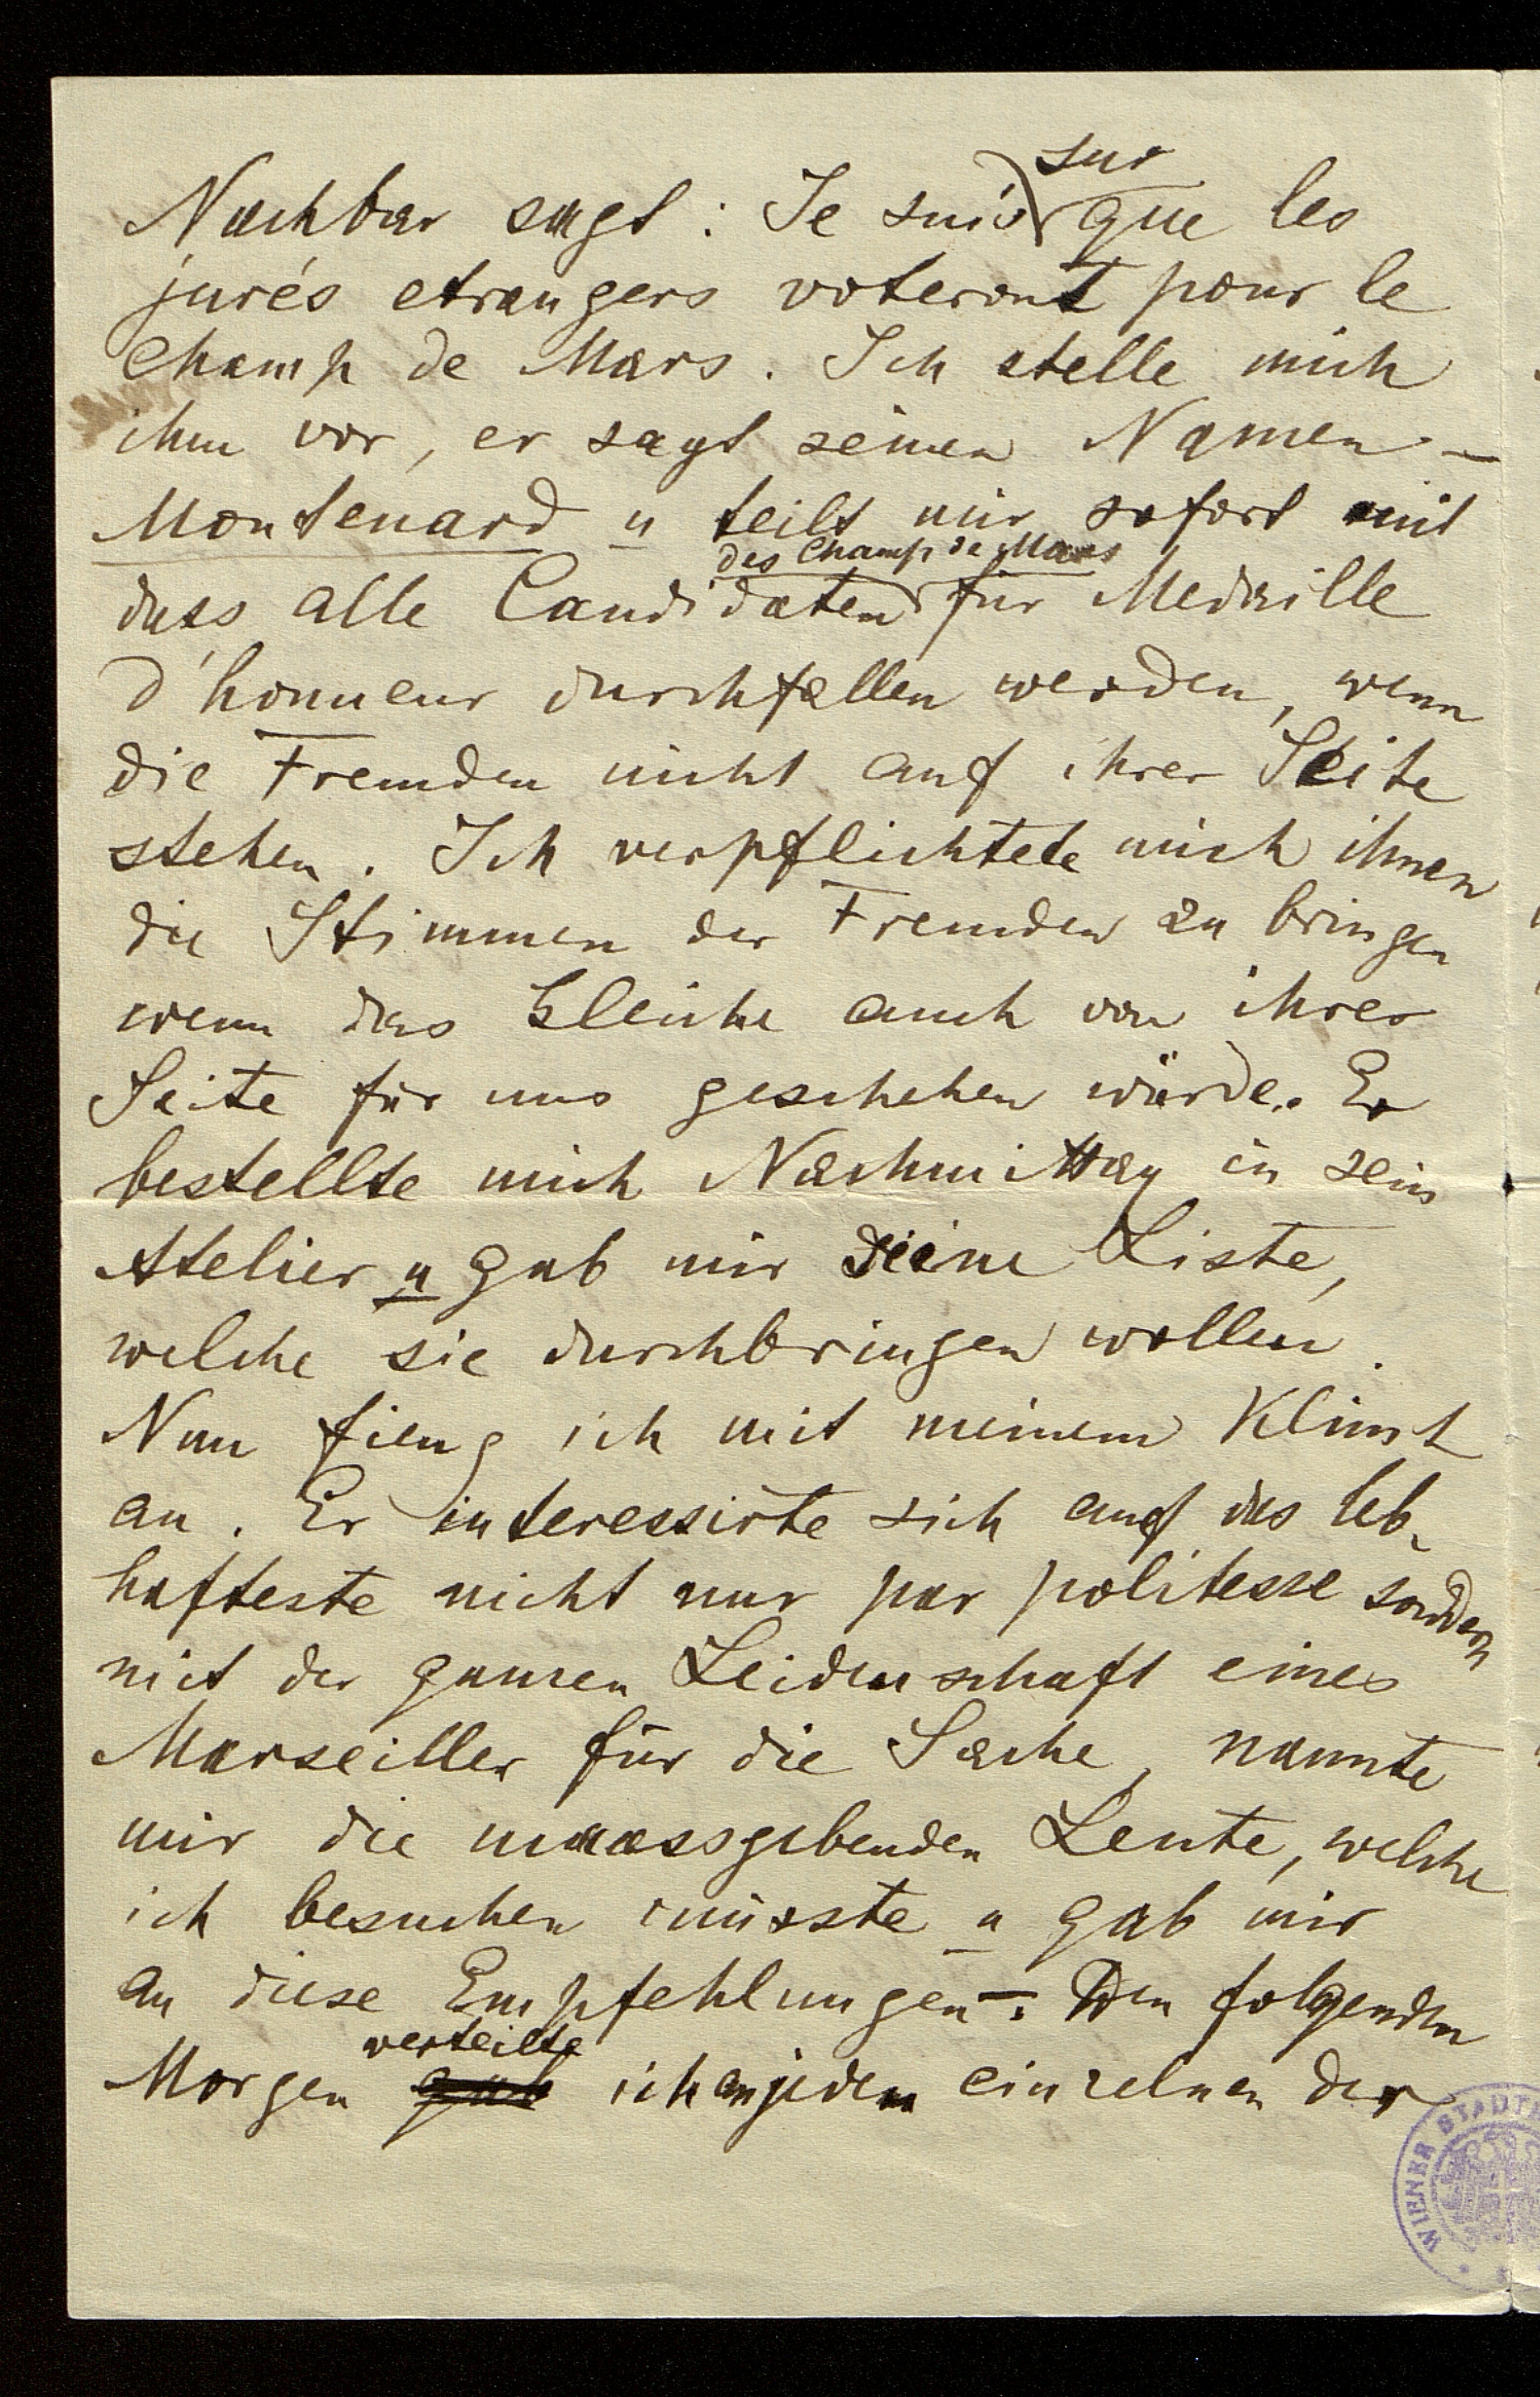 Nachbar sagt: Je suis sur que les
jurés etrangers voteront pour le
Champ de Mars. Ich stelle mich
ihm vor, er sagt seinen Namen –
Montenard u teilt mir sofort mit
dass alle Candidaten des Champ de Mars für Medaille
d'honneur durchfallen werden, wenn
die Fremden nicht auf ihrer Seite
stehen. Ich verpflichtete mich ihnen
die Stimmen der Fremden zu bringen
wenn das Gleiche auch von ihrer
Seite für uns geschehen würde. Er
bestellte mich Nachmittag in sein
Atelier u gab mir seine Liste,
welche sie durchbringen wollen.
Nun fieng ich mit meinem Klimt
an. Er interessirte sich auf das leb-
hafteste nicht nur par politesse sondern
mit der ganzen Leidenschaft eines
Marseiller für die Sache, nannte
mir die maassgebenden Leute, welche
ich besuchen müsste u gab mir
an diese Empfehlungen –. Den folgenden
Morgen gab verteilte ich an jeden einzelnen der
WIENER STADT